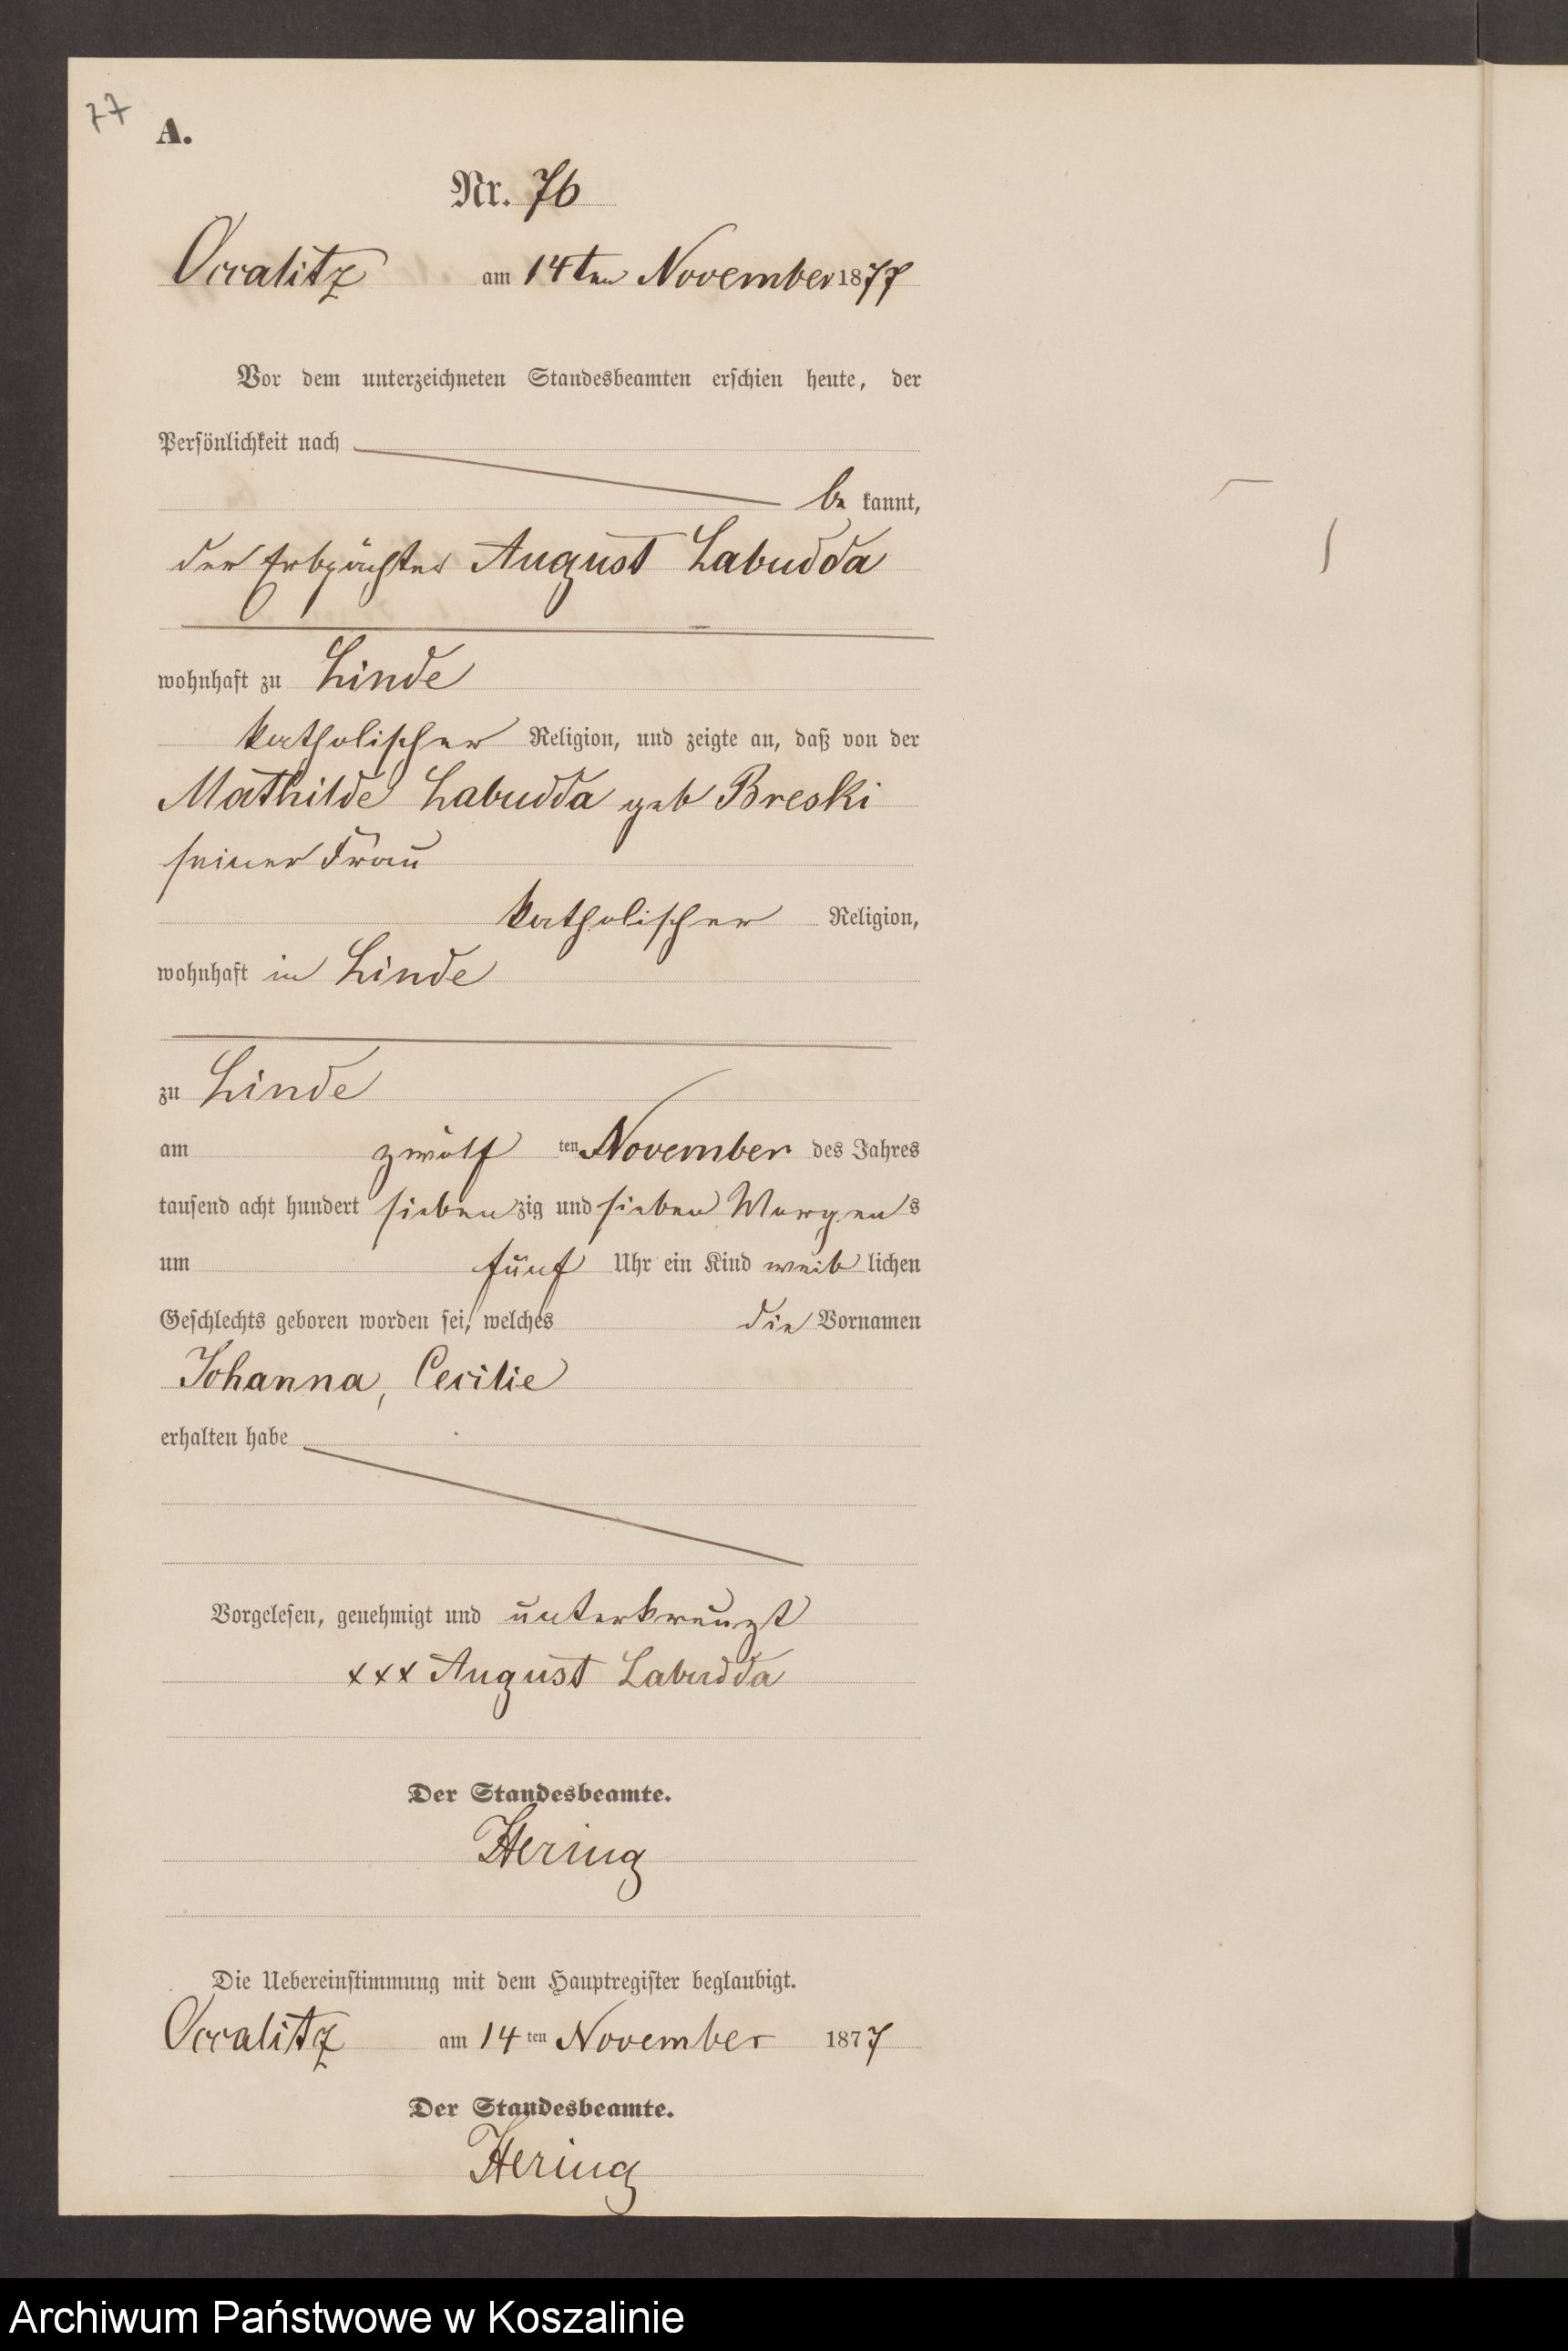 77
A.
Nr. 76
Occalitz am 14ten November 1877
Vor dem unterzeichneten Standesbeamten erschien heute, der
Persönlichkeit nach
be kannt,
der Erbpächter August Labudda
wohnhaft zu Linde
katholischer Religion, und zeigte an, daß von der
Mathilde Labudda geb Breski
seiner Frau
katholischer Religion,
wohnhaft in Linde
zu Linde
am zwölf ten November des Jahres
tausend acht hundert sieben zig und sieben Morgens
um fünf Uhr ein Kind weib lichen
Geschlechts geboren worden sei, welches die Vornamen
Johanna, Cecilie
erhalten habe
Vorgelesen, genehmigt und unterkreuzt
xxx August Labudda
Der Standesbeamte.
Hering
Die Uebereinstimmung mit dem Hauptregister beglaubigt.
Occalitz am 14 ten November 1877
Der Standesbeamte.
Hering
Archiwum Państwowe w Koszalinie